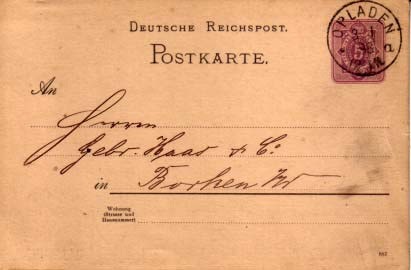 DEUTSCHE REICHSPOST.
POSTKARTE.
OPLADEN
5
An
Herren
Gebr. Haas & C°.
in Borken
Wohnung
(Strasse und
Hausnummer)